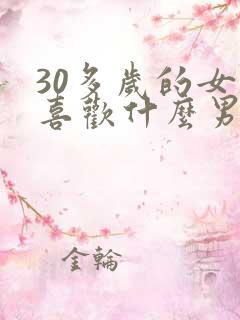 30多歲的女
喜歡什麼男
金輪